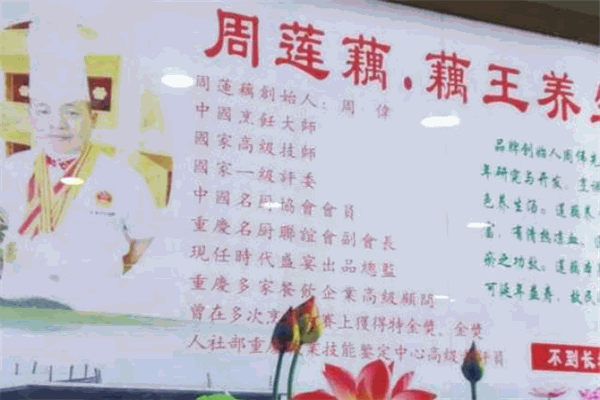 周莲藕·藕王养生
周蓮藕創始人：周偉
中國烹飪大師
國家高級技師
國家一級評委
中國名厨協會會員
重慶名厨聯誼會副會長
現任時代盛宴出品總監
重慶多家餐飲企業高級顧問
曾在多次烹 賽上獲得特金獎、金獎
人社部重慶 業技能鑒定中心高級 評員
品牌創始人周偉先
年研究与开发，烹调
色养生汤。莲藕养
富，有清热凉血、
瘀之功效。莲藕
可延年益寿，故民
不到长